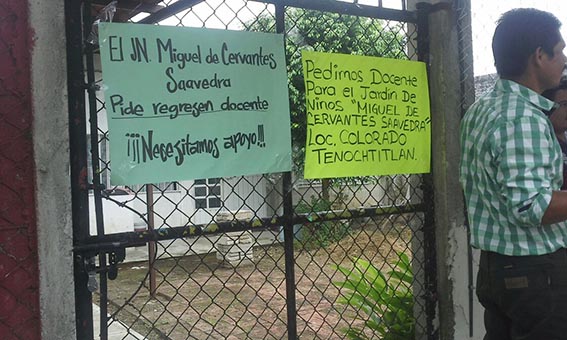 El JN. Miguel de Cervantes
Saavedra
Pide regresen docente
¡¡¡Necesitamos apoyo!!!
Pedimos Docente
Para el Jardin De
Niños "MIGUEL DE
CERVANTES SAAVEDRA"
Loc. COLORADO
TENOCHTITLAN.